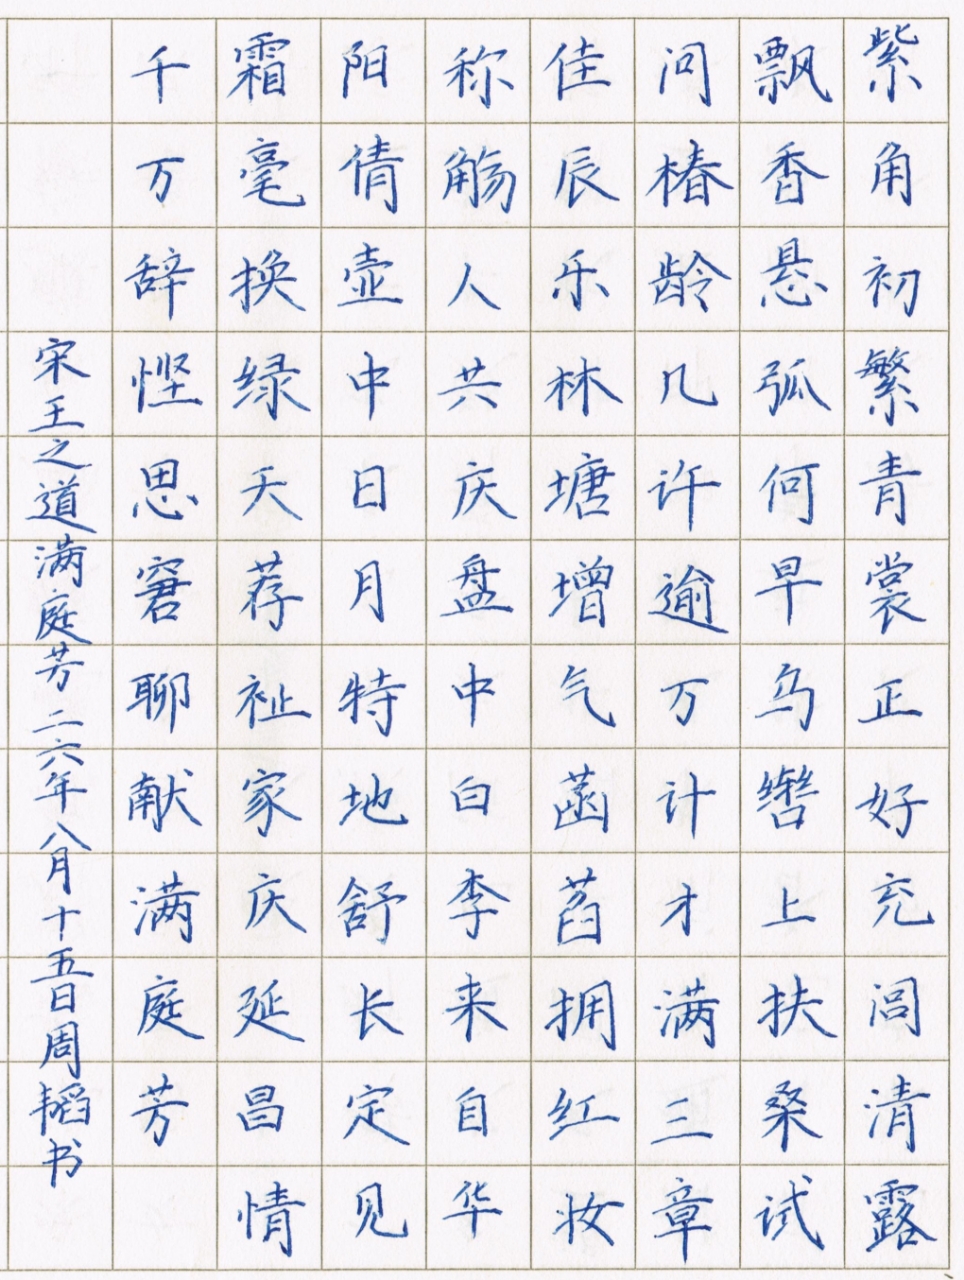 紫角初繁青裳正好充闾清露
飘香悬弧何早乌辔上扶桑试
问椿龄几许逾万计才满三章
佳辰乐林塘增气菡萏拥红妆
称觞人共庆盘中白李来自华
阳倩壶中日月特地舒长定见
霜毫换绿天荐祉家庆延昌情
千万辞悭思窘聊献满庭芳
宋王之道满庭芳二六年八月十五日周韬书